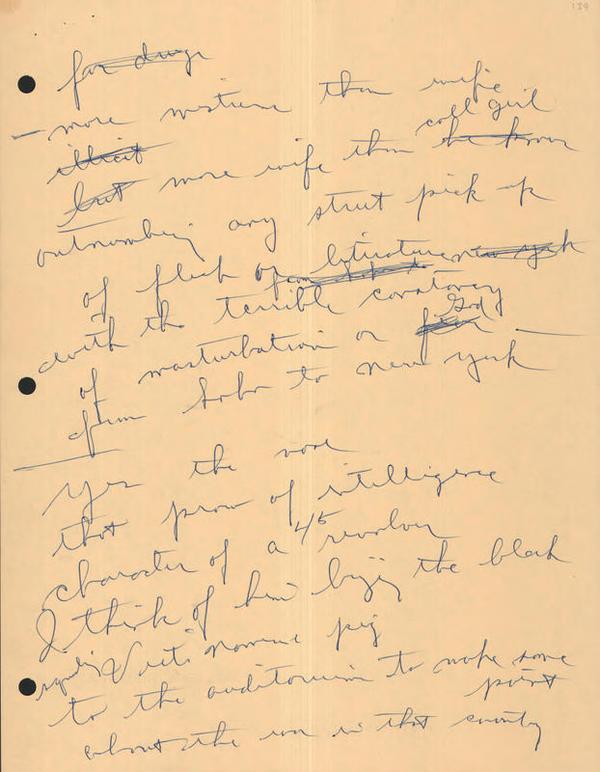 139
for drugs
— more mistress than wife
call girl
illicit
but more wife than the known
outnumbering any street pick up
of flesh or from literature new york
with the terrible constancy
of masturbation or fear God —
from Soho to new york
yes the nose
that prow of intelligence
character of a 45 revolver
I think of him buying the black
squealing Vietnamese pig
to the auditorium to make some
point
about the war in that country